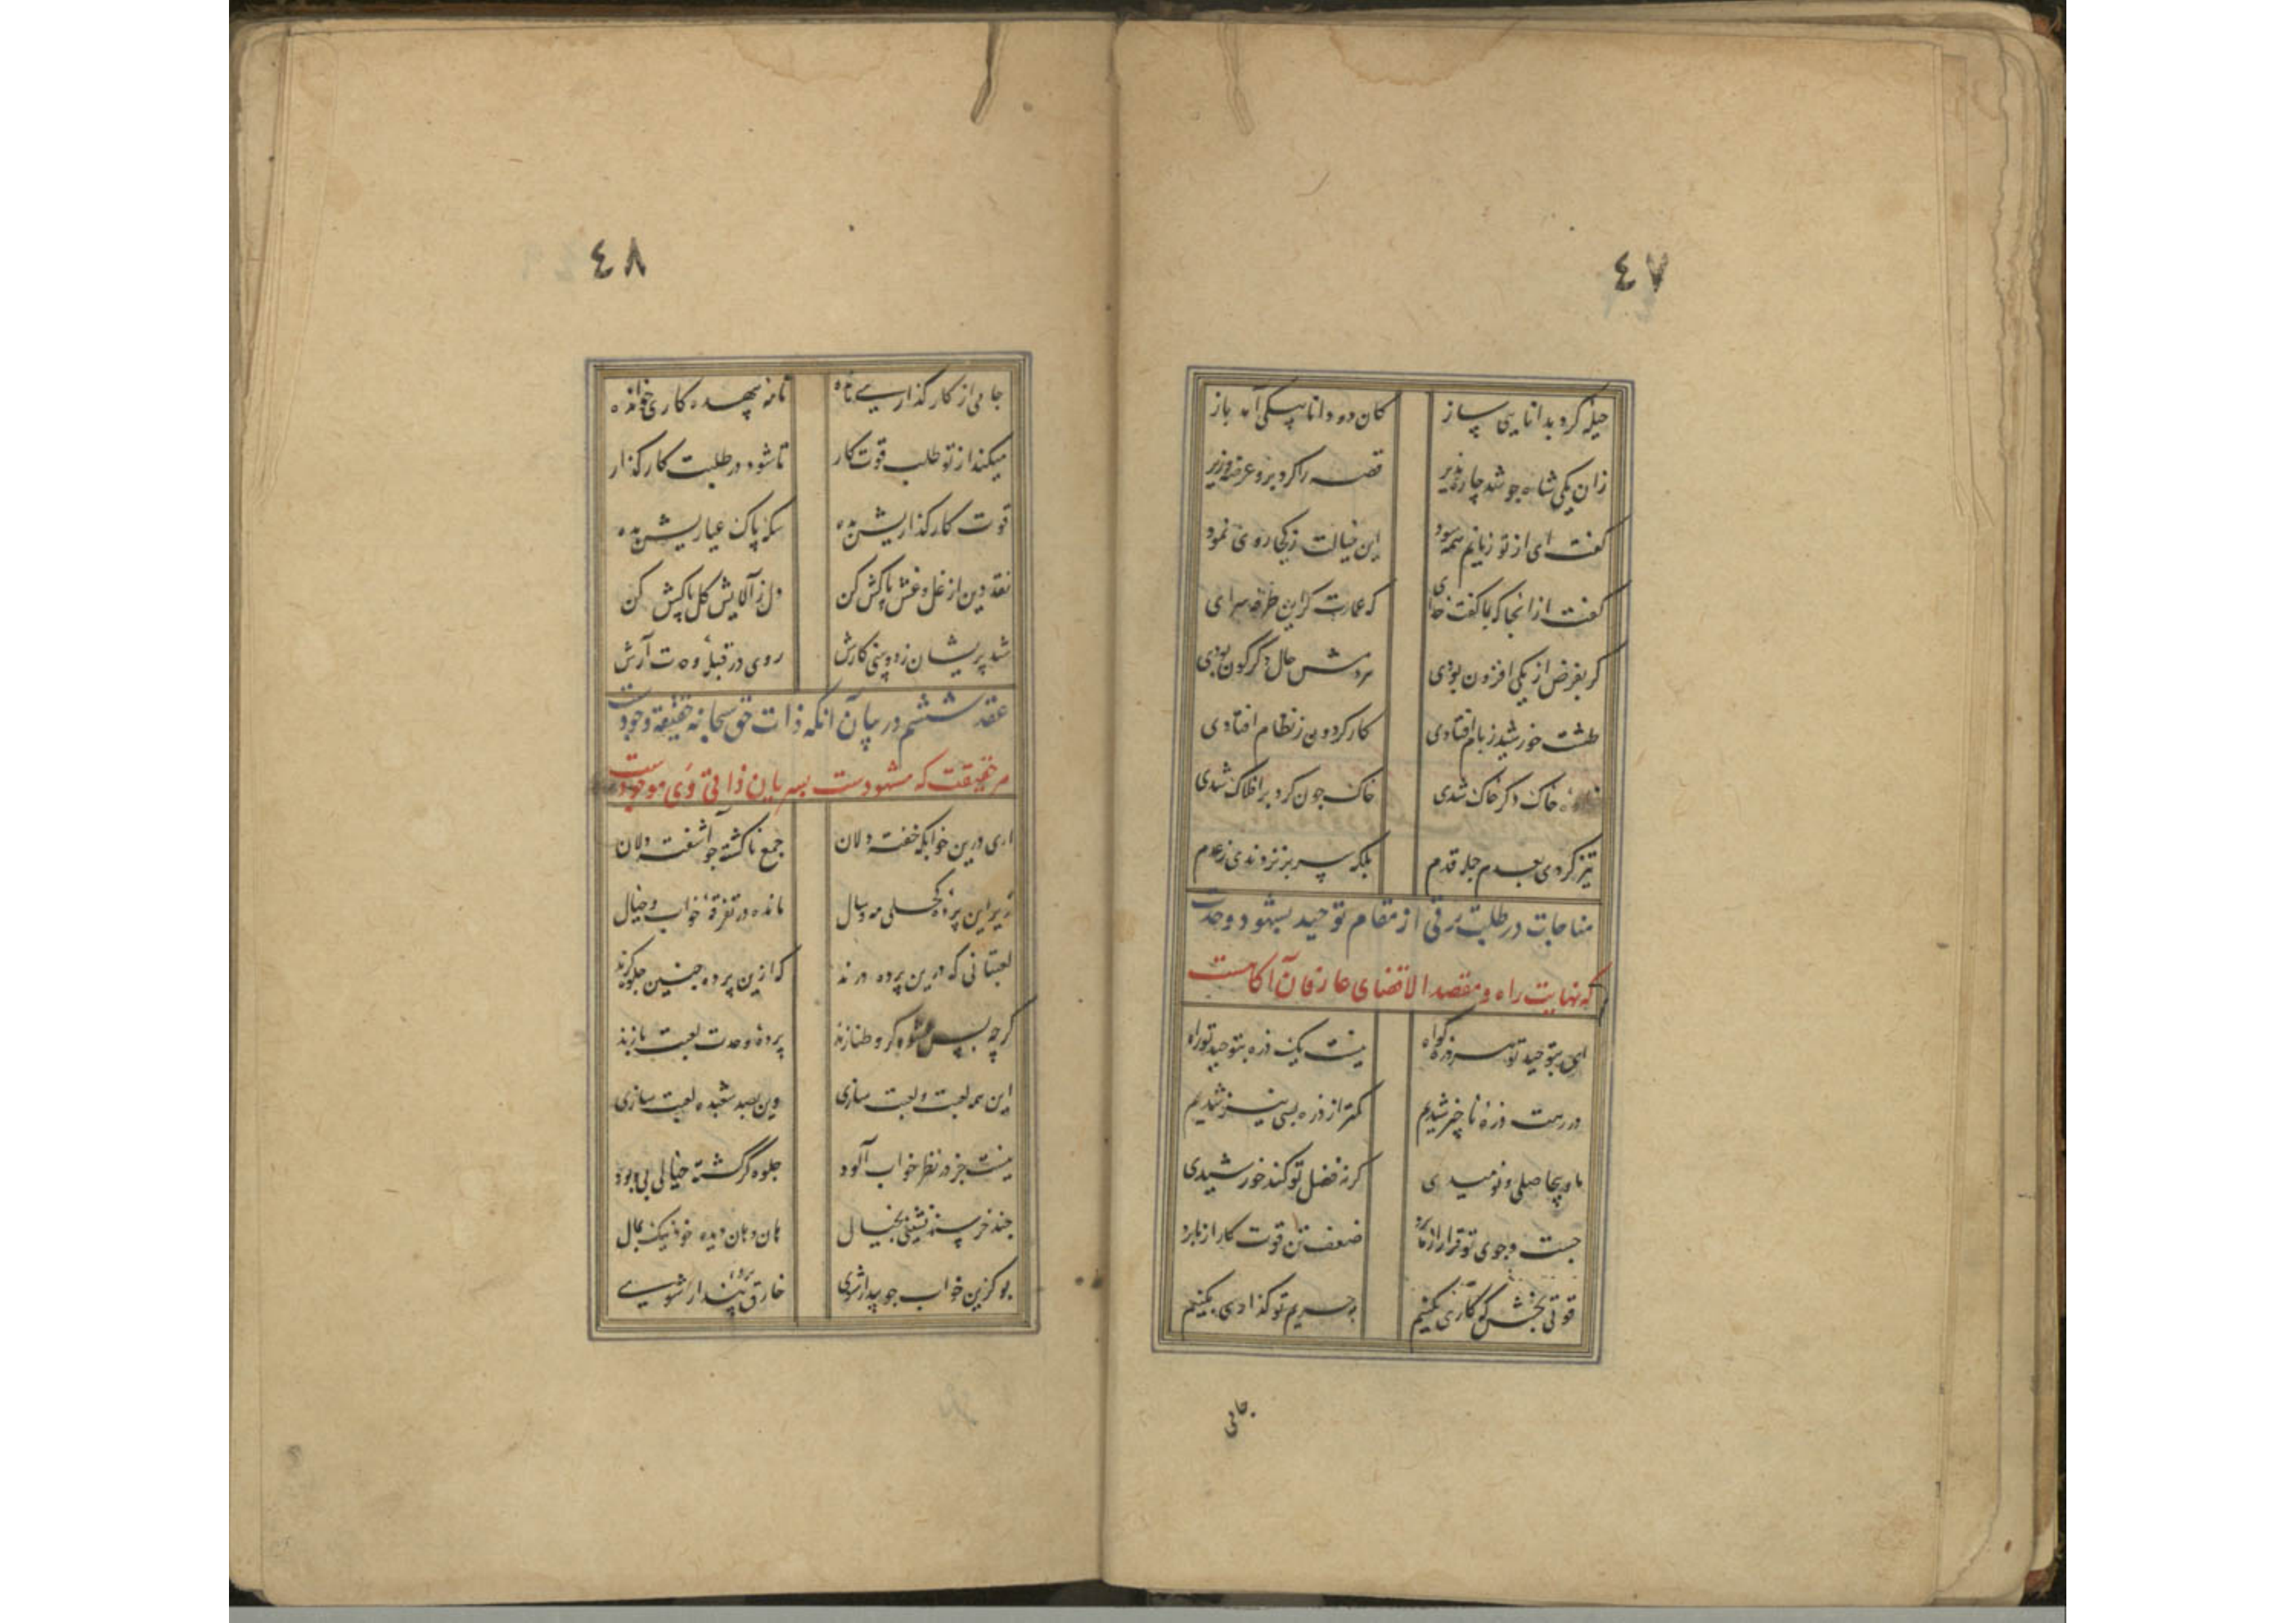 ٤٧
حیله کرد بدانایی ساز
کان دو دانا به یکی آمد باز
زان یکی شاه جو شد چاره پذیر
قصه را کرد برو عرض وزیر
گفت ای از تو زیانم همه سود
این خیالت ز کجا روی نمود
گفت از انجا که بما گفت خدای
که عمارت کر این طرفه سرای
کر بفرض از یکی افزون بودی
هر دمش حال دکرکون بودی
طشت خورشید ز بام افتادی
کار کردون ز نظام افتادی
خاک دکر خاک شدی
خاک چون کرد بر افلاک شدی
تیز کردی بعدم جمله قدم
بلکه سر بر نزدندی ز عدم
مناجات در طلب ترقی از مقام توحید بشهود وحدت
که نهایت راه و مقصد الاقصای عارفان آکاهست
ای بتوحید تو هر ذره کواه
نیست یک ذره بتوحید تو راه
در رهت ذرهٔ ناچیز شدیم
کمتر از ذره بسی نیز شدیم
ما و بیحاصلی و نومیدی
کرنه فضل تو کند خورشیدی
جست وجوی تو قرار از ما برد
ضعف تن قوت کار از ما برد
قوتی بخش که کاری بکنیم
بحریم تو کذاری بکنیم
جامی
٤٨
جامی از کار کذاری مانده
نامه بیهده کاری خوانده
میکند از تو طلب قوت کار
تا شود در طلبت کار کذار
قوت کار کذاریش بده
سکه پاک عیاریش بده
نقد دین از غل و غش پاکش کن
دل ز آلایش کل پاکش کن
شد پریشان ز دو بینی کارش
روی در قبلهٔ وحدت آرش
عقد ششم در بیان آنکه ذات حق سبحانه حقیقة وجودست
هر حقیقت که مشهودست بسریان ذاتی وی موجودست
ای درین خوابکه خفته دلان
جمع ناکشته جو آشفته دلان
زیر این پردهٔ کحلی مه و سال
مانده در تفرقهٔ خواب و خیال
لعبتانی که درین پرده درند
که ازین پرده جنین جلوه کرند
کرچه بس عشوه کر و طنازند
پردهٔ وحدت لعبت بازند
این همه لعبت و لعبت سازی
وین بصد شعبده لعبت بازی
نیست جز در نظر خواب آلود
جلوه کر کشته خیالی بی بود
جند خرسند نشینی بخیال
هان و هان دیدهٔ خود نیک بمال
بو کزین خواب جو بیدار شوی
خارق پردهٔ پندار شوی